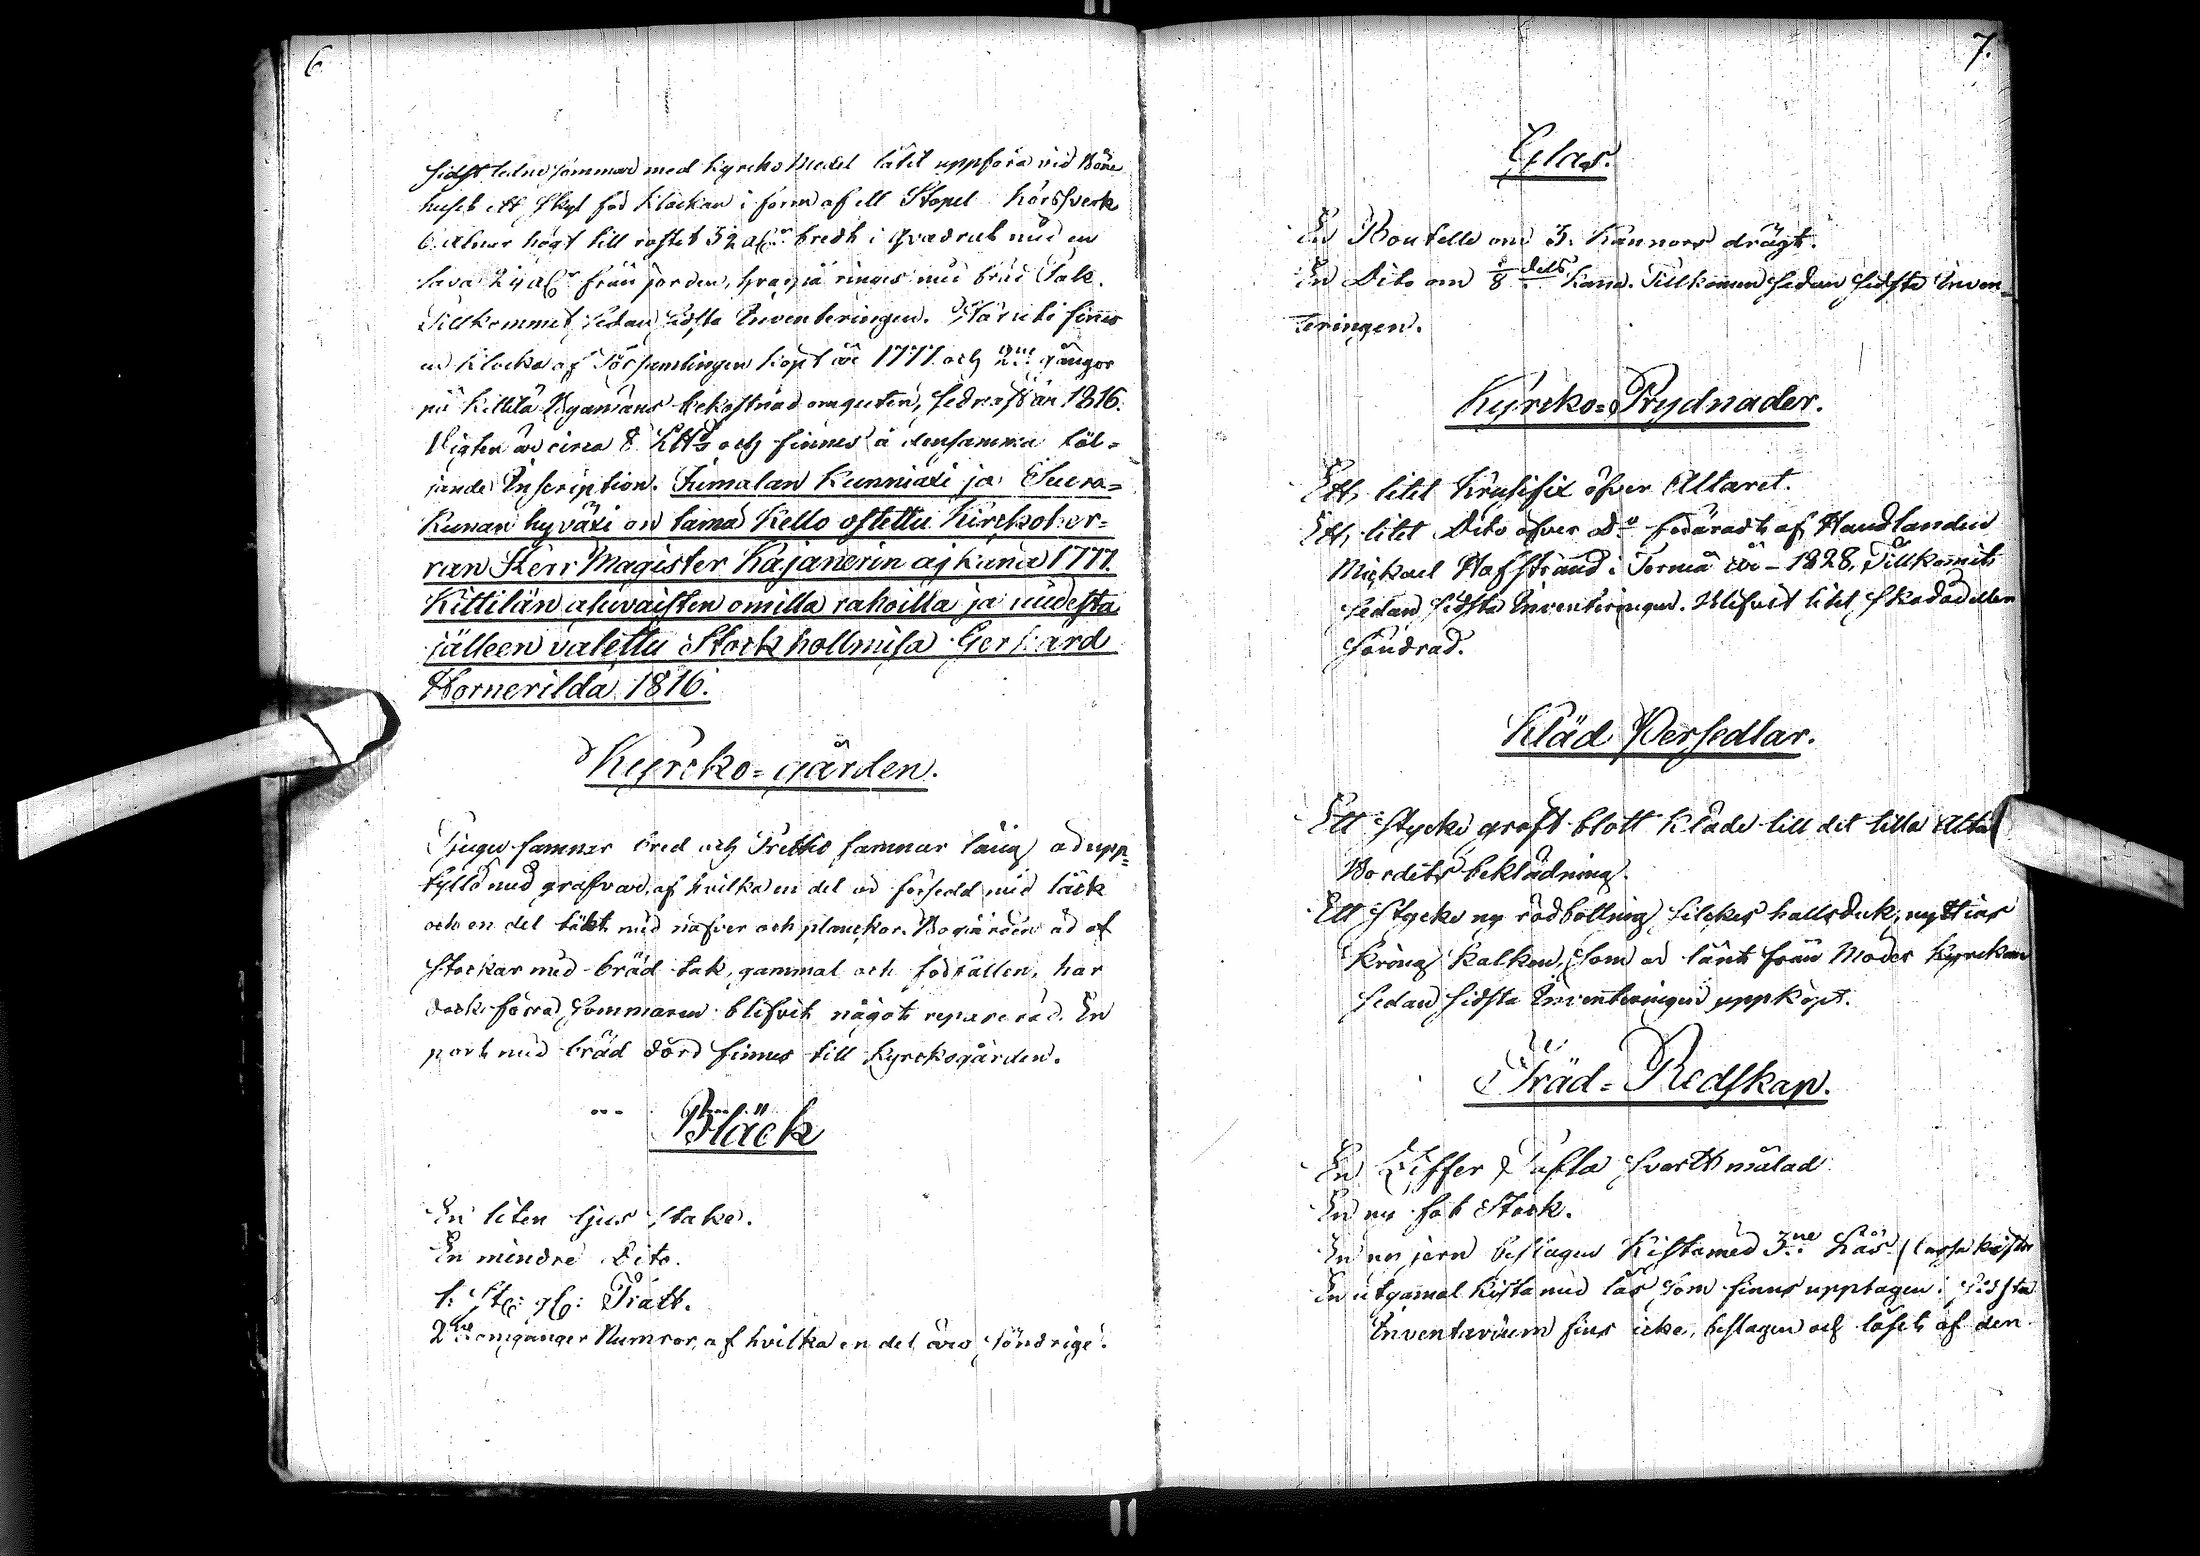 6
sidstledne sommar med Kyrcko Medel låtit uppföra vid Böne
huset ett Skyl för Klockan i form af ett Stapel korssverk
6. alnar högt till rostet 3½ alr bredt i qvadrat med en
lava 2¼ alr från jorden, hvarpå ringes med bräd Tak.
Tillkommit sedan sidsta Inventeringen. Häruti finnes
en Klocka af Församlingen köpt år 1777. och 2ne gånger
på Kittilä Byamäns bekostnad omguten, sednast år 1816.
Vigten är circa 8. och finnes å densamma föl-
jande Inscription. Jumalan Kunniaxi ja Seura-
kunan hyväxi on tama Kello ostettu Kirckoher-
ran Herr Magister Kajanerin aikana 1777.
Kittilän asuvaisten omilla rahoilla ja uudesta
jälleen valettu Stockhollmisa Gerhard
Hornerilda 1816.
Kyrcko-gården.
Tjugu famnar bred och Trettio famnar lång är upp-
fylld med grafvar, af hvilka en del är försedd med läck
och en del täkt med näfver och planckor. Bogården är af
Stockar med bräd tak, gammal och förfallen, har
dock förra Sommaren blifvit något reparerad. En
port med bräd dörr finnes till Kyrckogården.
Bläck
En liten ljus stake.
En mindre Dito.
1. St: gl: Tratt.
2ne omgånger Numror, af hvilka en del äro söndrige.
7.
Glas.
En Boutelle om 3. Kannors drägt.
En Dito om ⅛ dels Kanna. Tillkommen sedan sidsta Inven-
teringen.
Kyrcko-Prydnader.
Ett, litet Krusifix öfver Altaret.
Ett, litet Dito öfver Do föräradt af Handlanden
Mickael Hofstrand i Torneå år 1828, Tillkommit
sedan sidsta Inventeringen. Blifvit litet skadad eller
söndrad.
Kläd Persedlar.
Ett Stycke groft blott Kläde till det lilla Altar
Bordets beklädning.
Ett Stycke ny rödbottnig silckes hallsduk, nyttjas
kring Kalken, som är länt från Moder Kyrckan
sedan sidsta Inventeringen uppköpt.
Träd-Redskap.
En Ziffer Tafla svart målad
En ny fot Stock.
En ny jern beslagen Kista med 3ne Lås (cassa kista
En utgamal Kista med lås som finnes upptagen i sidsta
Inventarium fins icke, beslagen och låset af den